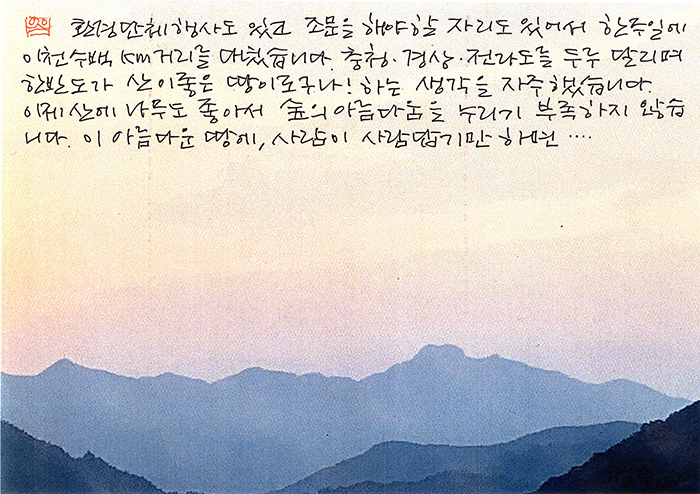 환경단체행사도 있고 조문을 해야할 자리도 있어서 한주일에
이천수백 km거리를 마쳤습니다. 충청·경상·전라도를 두루 달리며
한반도가 산이좋은 땅이로구나! 하는 생각을 자주했습니다.
이제 산에 나무도 좋아서 숲의 아름다움을 누리기 부족하지 않습
니다. 이 아름다운 땅에, 사람이 사람답기만 하면 ····